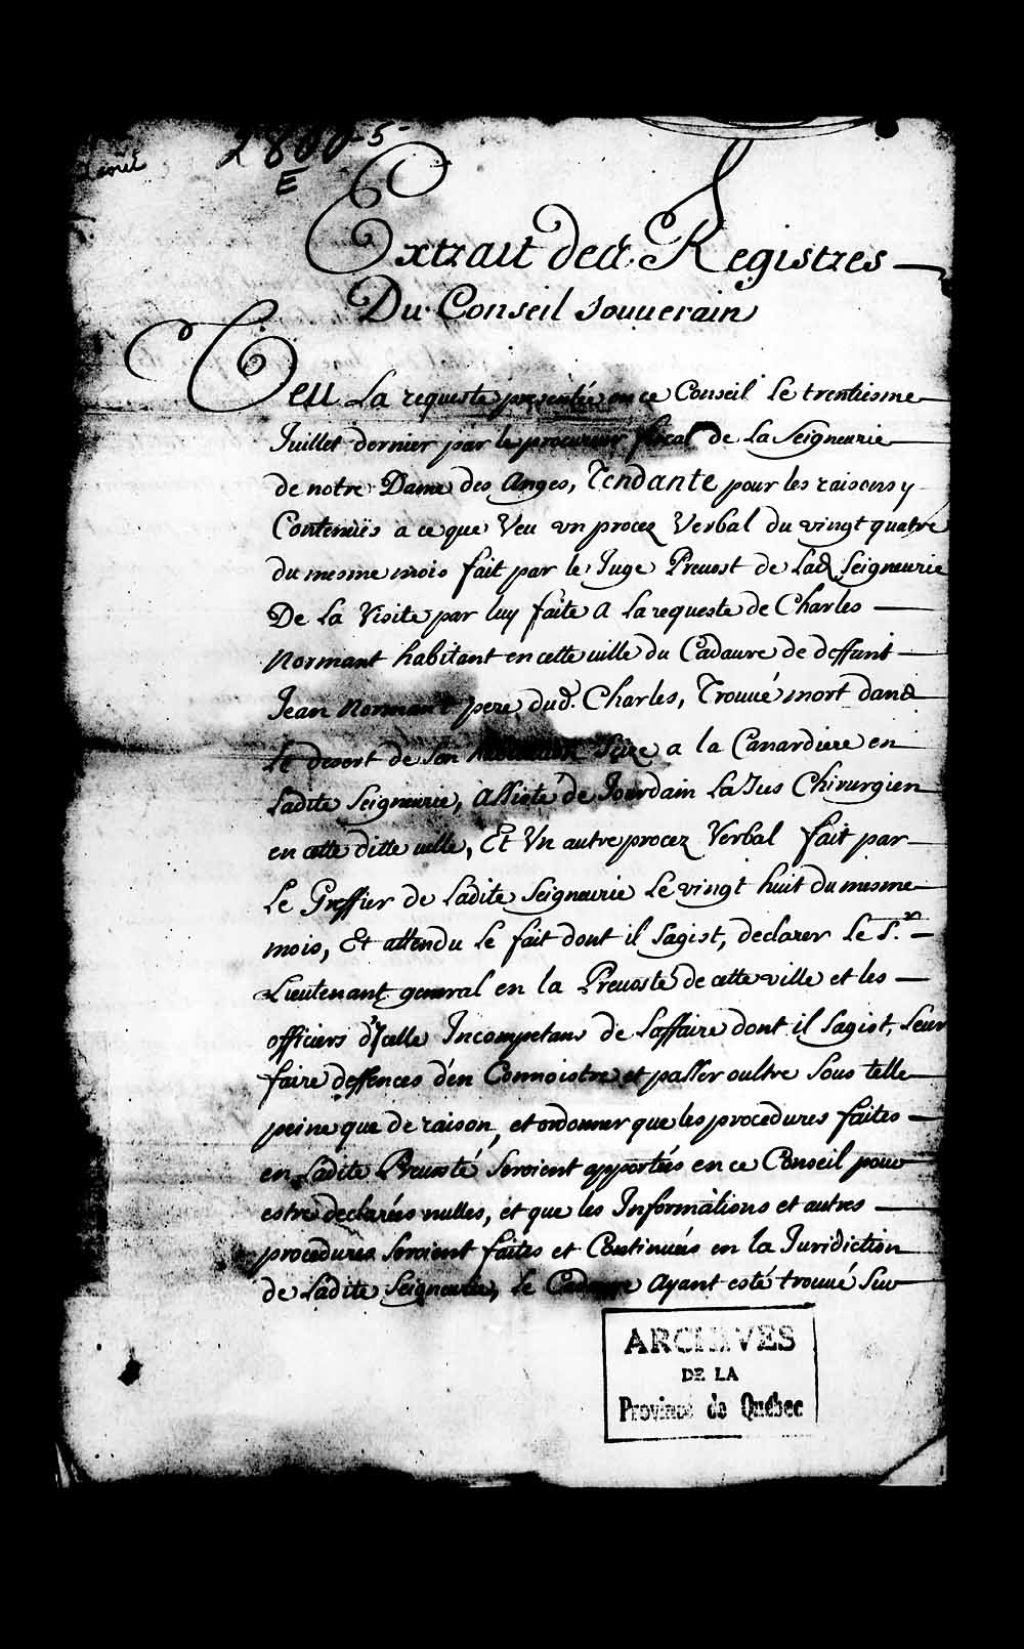 2800-5
E
Extrait des Registres
Du Conseil Souuerain
Veu La requeste presentée en ce Conseil Le trentiesme
Juillet dernier par le procureur fiscal de La Seigneurie
de notre Dame des Anges, Tendante pour les raisons y
Contenuës a ce que Veu vn procez Verbal du vingt quatre
du mesme mois fait par le Juge Preuost de Lad. Seigneurie
De La Visite par luy faite A La requeste de Charles
Normant habitant en cette uille du Cadaure de deffunt
Jean Normant pere dud. Charles, Trouué mort dans
Le desert de Son size a la Canardiere en
Ladite Seigneurie, Assisté de Jourdain LaJus Chirurgien
en cette ditte uille, Et Vn autre procez Verbal fait par
Le Greffier de Ladite Seigneurie Le vingt huit du mesme
mois, Et attendu Le fait dont il Sagist, declarer Le Sr.
Lieutenant general en la Preuosté de cette ville et les
officiers d'Jcelle Incompetans de Laffaire dont il Sagist, Leur
faire deffences d'en Connoistre et passer oultre Sous telle
peine que de raison, et ordonner que les procedures faites
en Ladite Preuosté Seroient apportées en ce Conseil pour
estre declarées nulles, et que les Informations et autres
procedures Seroient faites et Continuées en la Juridiction
de Ladite Seigneurie, Le Cadaure Ayant esté trouué Sur
ARCHIVES
DE LA
Province de Québec